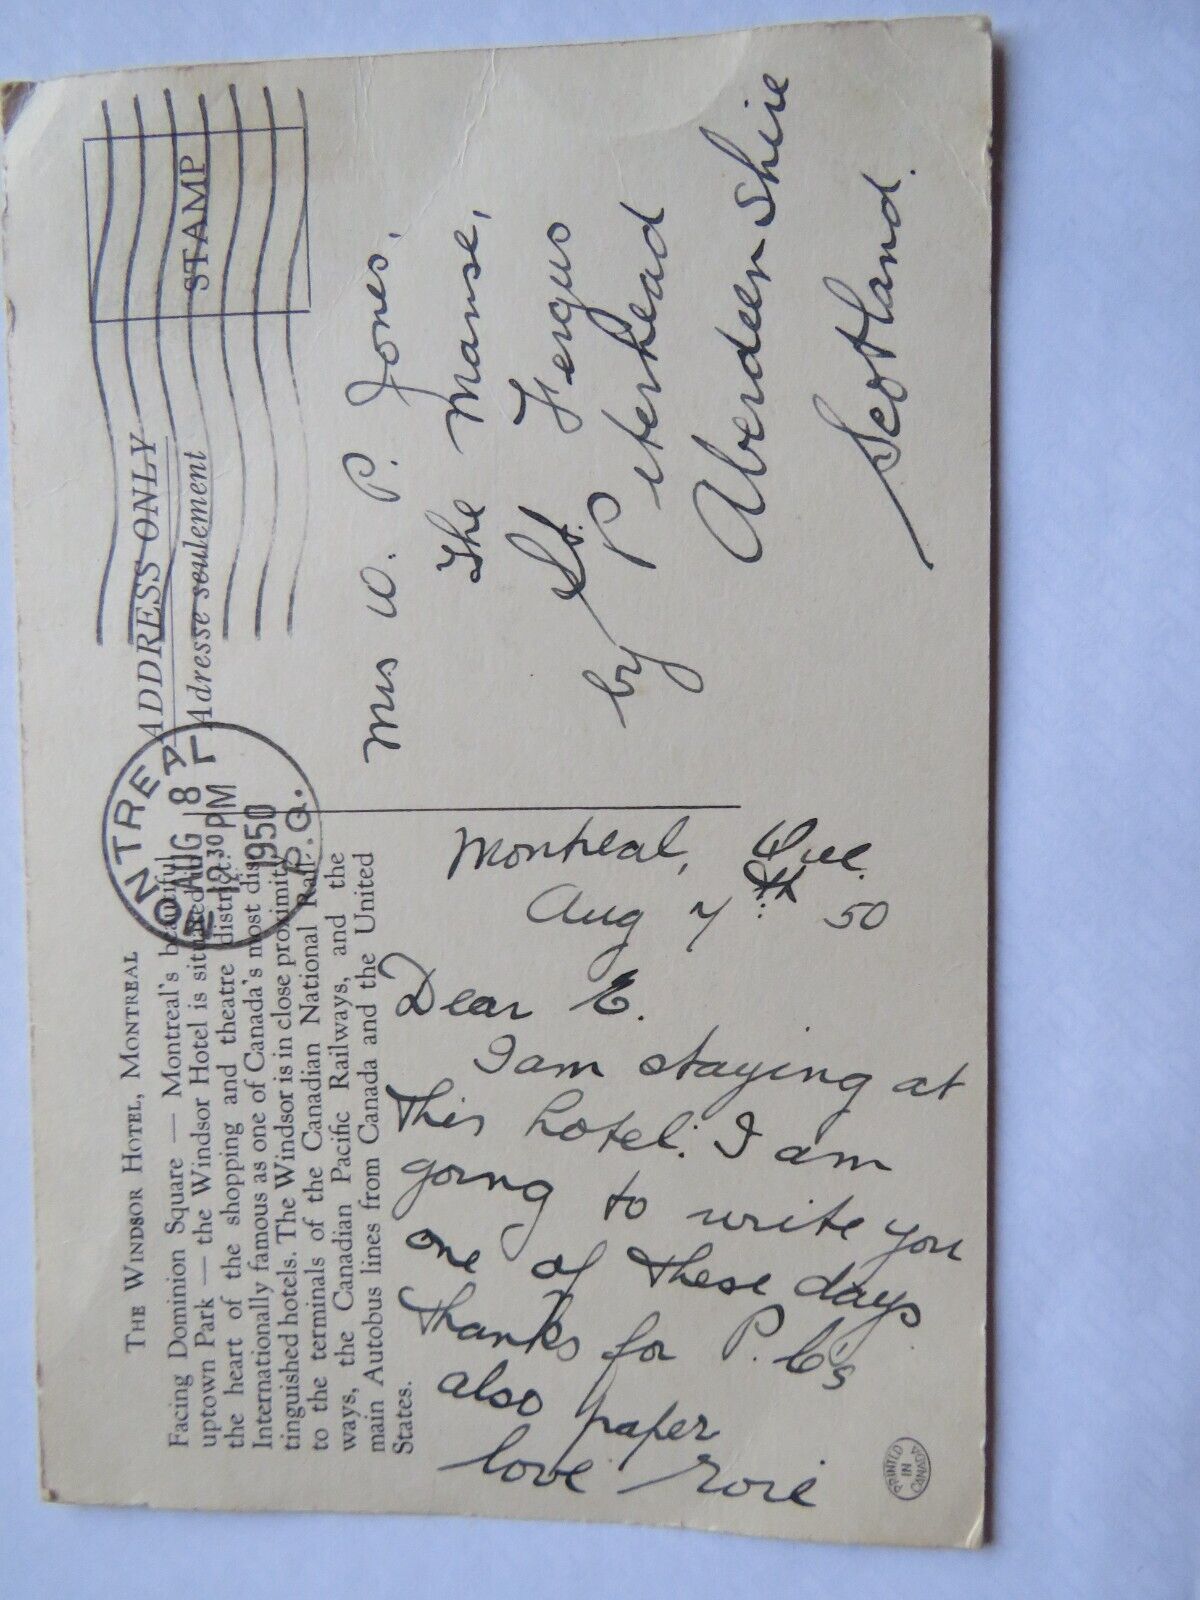 THE WINDSOR HOTEL, MONTREAL
Facing Dominion Square — Montreal's beautiful
uptown Park — the Windsor Hotel is situated in
the heart of the shopping and theatre district.
Internationally famous as one of Canada's most dis-
tinguished hotels. The Windsor is in close proximity
to the terminals of the Canadian National Rail-
ways, the Canadian Pacific Railways, and the
main Autobus lines from Canada and the United
States.
Montreal, Que.
Aug 7th 50
Dear E.
I am staying at
this hotel. I am
going to write you
one of these days
thanks for P.C's
also paper
love
PRINTED
IN
CANADA
MONTREAL
AUG 8
12.30 PM
1950
P.Q.
ADDRESS ONLY
Adresse seulement
STAMP
Mrs W. P. Jones,
The Manse,
St. Fergus
by Peterhead
Aberdeenshire
Scotland.